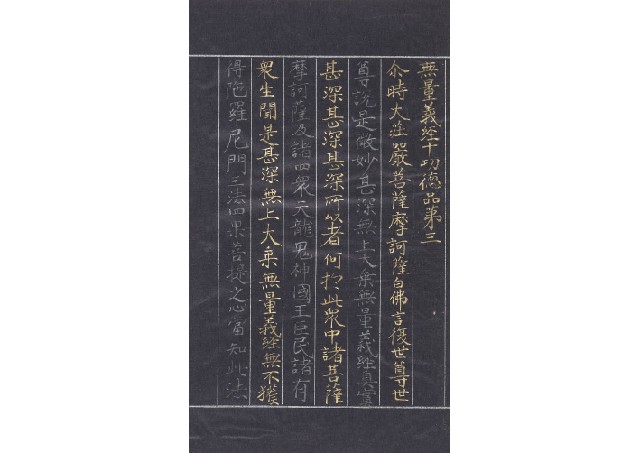 無量義経十功徳品第三
尒時大荘嚴菩薩摩訶薩白佛言復世尊世
尊說是微妙甚深無上大乗無量義経真實
甚深甚深甚深所以者何扵此衆中諸菩薩
摩訶薩及諸四衆天龍鬼神國王臣民諸有
衆生聞是甚深無上大乗無量義経無不獲
得陁羅尼門三法四果菩提之心當知此法